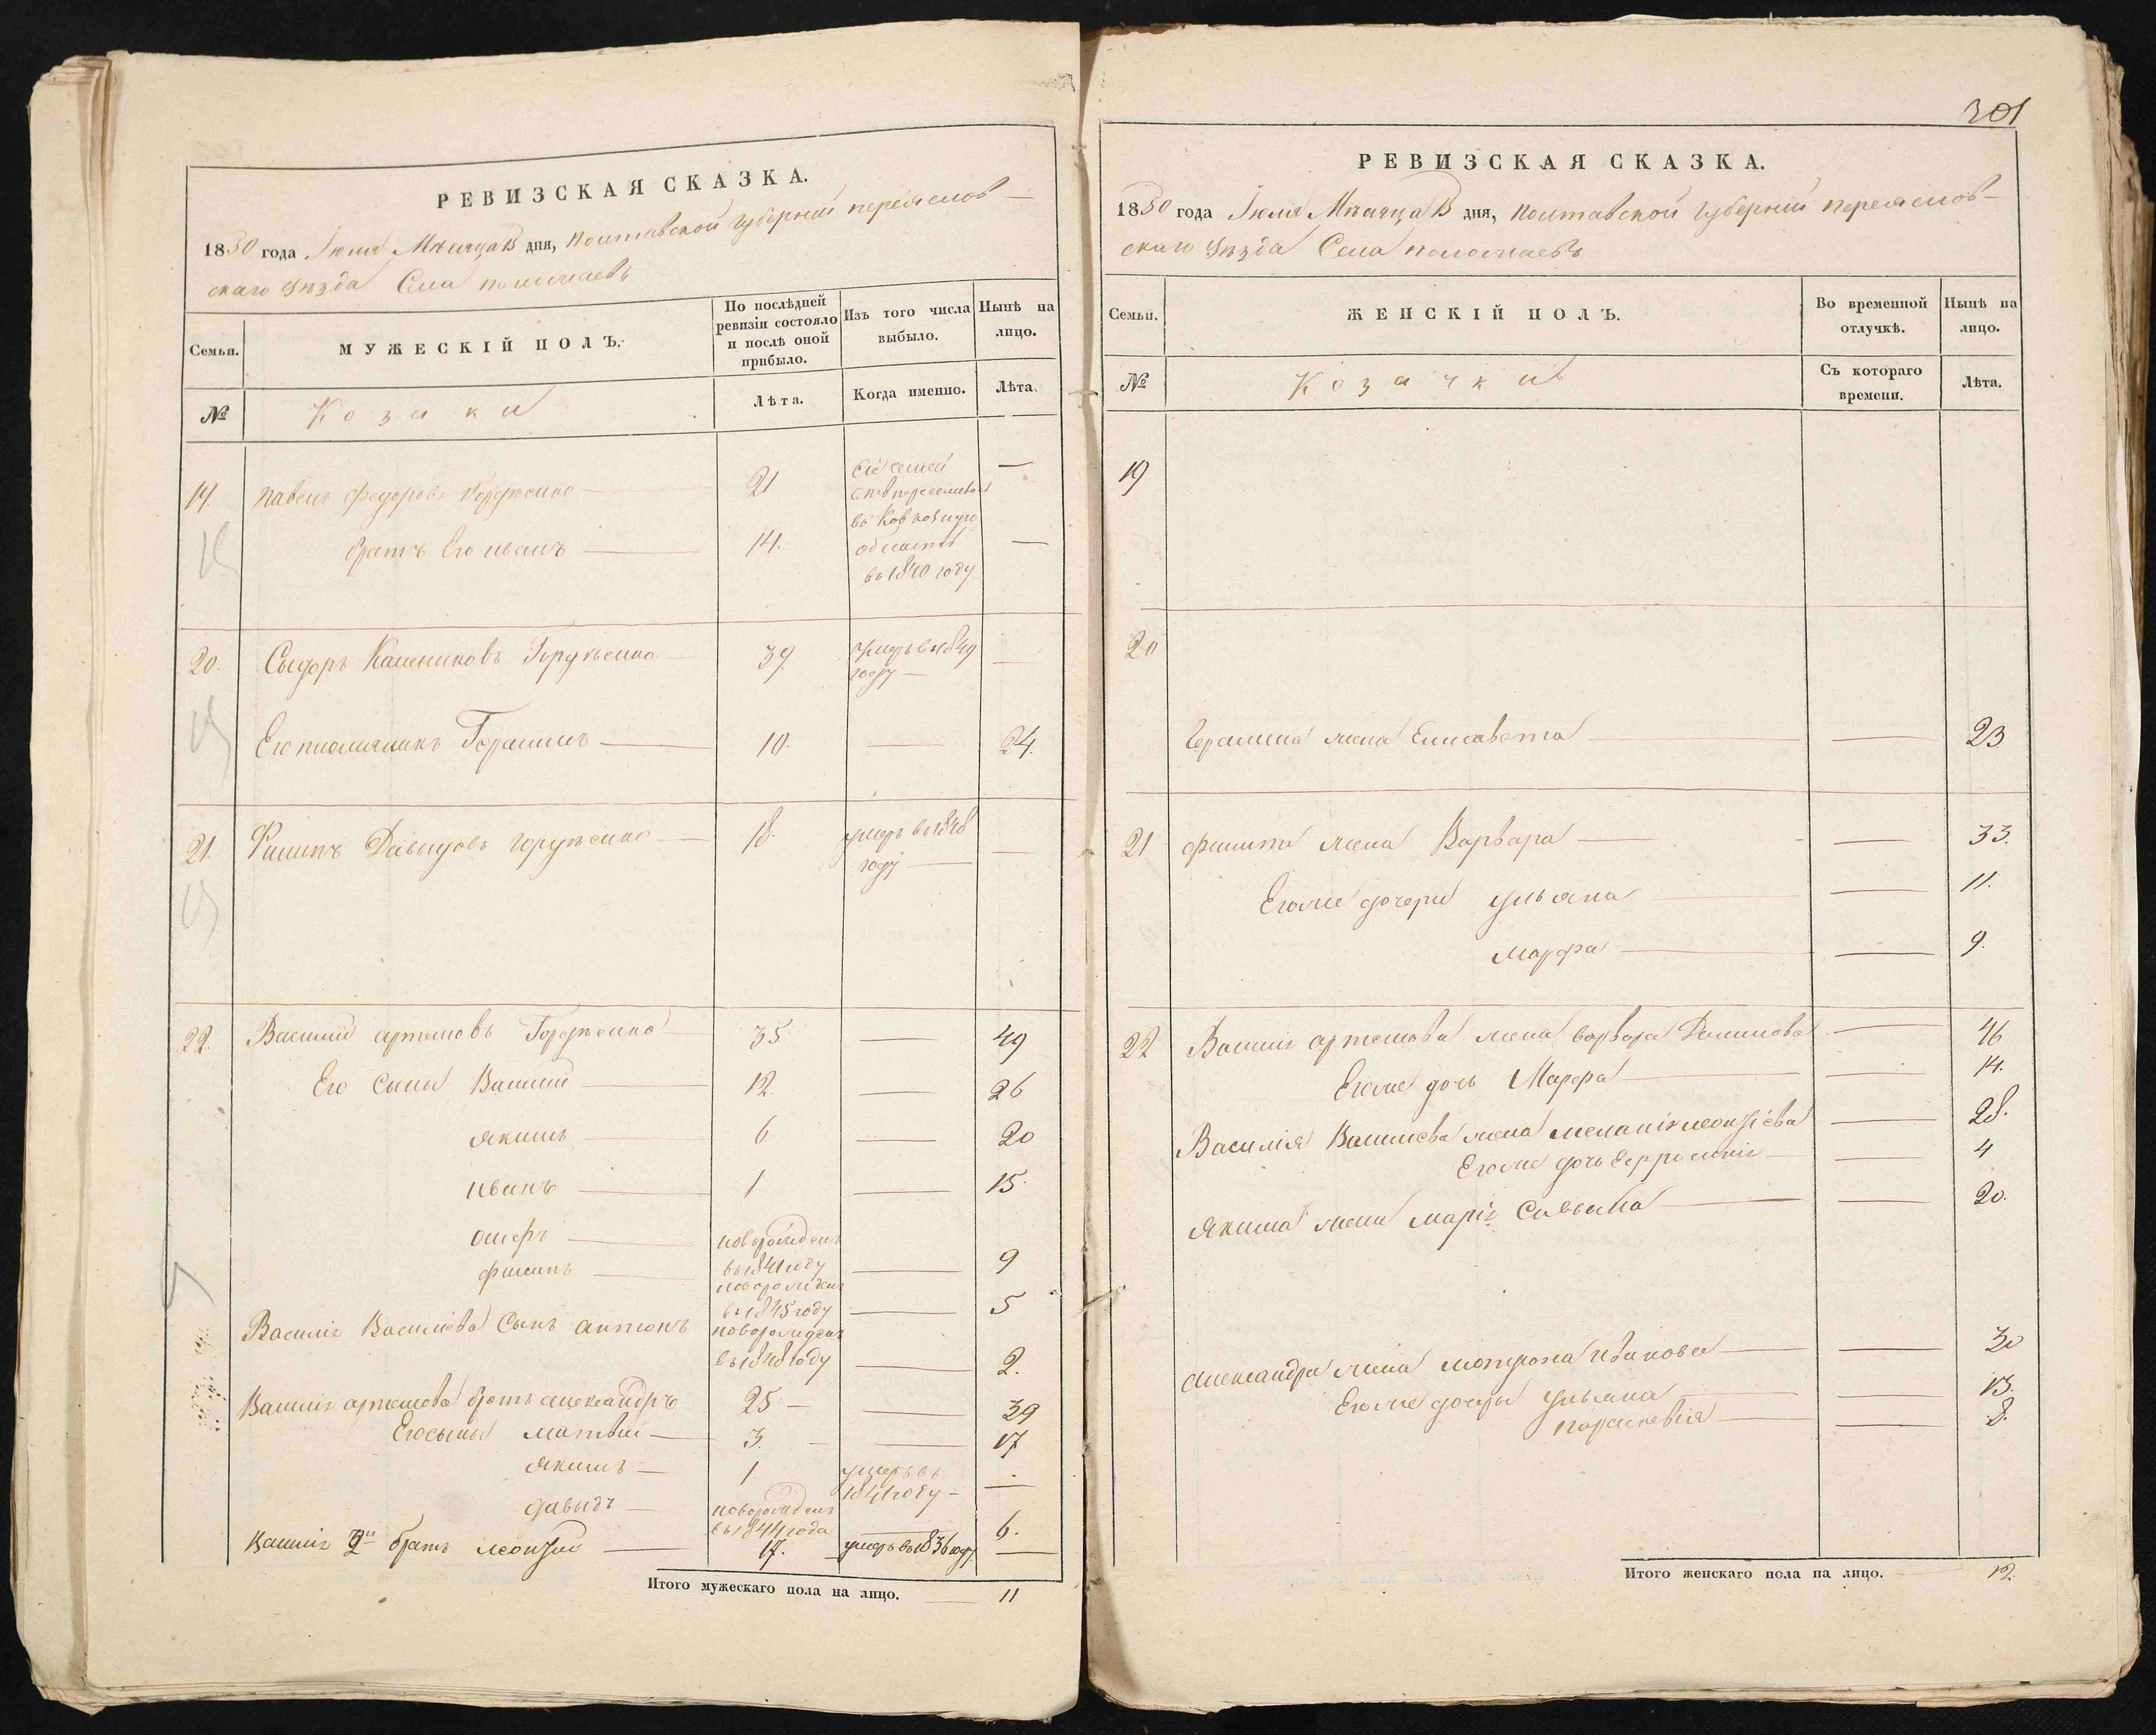 РЕВИЗСКАЯ СКАЗКА.
1850 года Іюля Мѣсяца 13 дня, Полтавской Губерніи переяслов-
скаго уѣзда Села
Семьи.
МУЖЕСКІЙ ПОЛЪ.
По послѣдней ревизіи состояло и послѣ оной прибыло.
Изъ того числа выбыло.
Нынѣ на лицо.
№
Козаки
Лѣта.
Когда именно.
Лѣта.
19. павелъ федоровъ 21 —
братъ Его иванъ — 14. —
въ 1840 году
20. Сыдоръ Калениковъ 39. умеръ в 1849 году — —
Его племяникъ Герасимъ — 10. — 24.
21. Филипъ Давыдовъ 18. умеръ в 1848 году — —
22. Василій артемовъ 35 — 49
Его Сыны Василий — 12. — 26
якимъ — 6 — 20
иванъ — 1 — 15.
новорожденъ в 1841 году — 9
филипъ — новорожденъ в 1845 году — 5
Василія Василіева Сынъ антонъ новорожденъ в 1848 году — 2.
Василія артемова братъ александръ 25 — — 39
Его сыны матвій — 3. — — 17
якимъ — 1. умеръ въ 1841 году — —
давыдъ — новорожденъ в 1844 года 6.
Василія 2й братъ леонтій — 17. умеръ въ 1836 году —
Итого мужескаго пола на лицо. — 11
301
РЕВИЗСКАЯ СКАЗКА.
1850 года Іюля Мѣсяца 13 дня, полтавской губерніи переяслов-
скаго уѣзда Села
Семьи.
ЖЕНСКІЙ ПОЛЪ.
Во временной отлучкѣ.
Нынѣ на лицо.
№
Козачки
Съ котораго времени.
Лѣта.
19
20
Герасима жена Елисавета — — 23.
21 филипа жена Варвара — — 33.
Егоже дочери ульяна — — 11.
марфа — — 9.
22 Василія артемова жена варвара — 46
Егоже дочь Марфа — — 14.
Василія Василиева жена меланія леонтіева — 28.
Егоже дочь Ефросинія — — 4
якима жена марія — — 20.
александра жена мотрона иванова — — 30
Егоже дочери ульяна — — 13.
параскевія — — 8.
Итого женскаго пола на лицо. — 12.